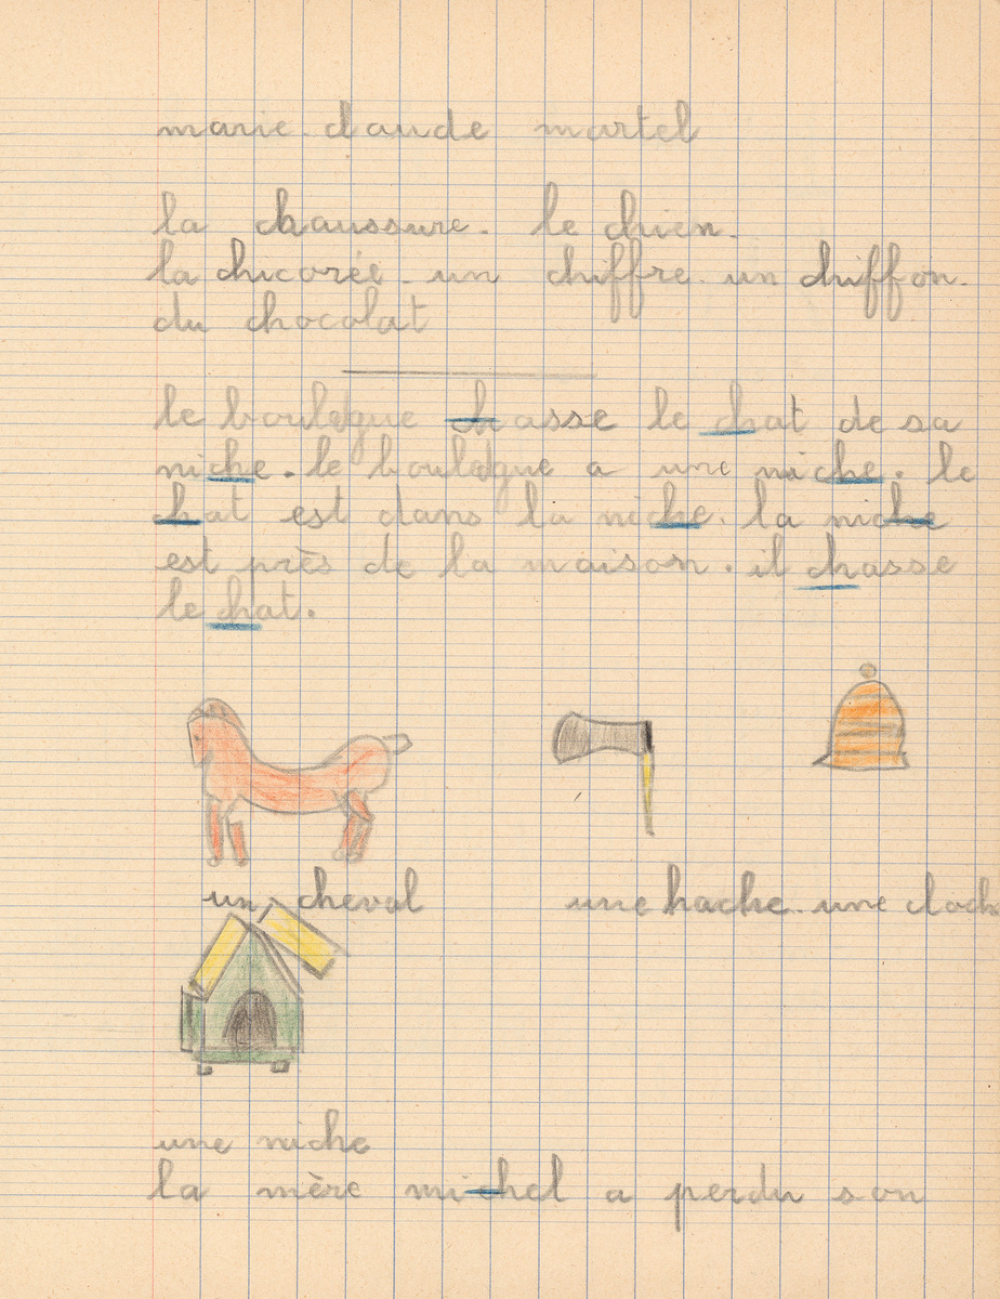 marie claude martel
la chaussure. le chien.
la chicorée. un chiffre. un chiffon.
du chocolat
le bouledgue chasse le chat de sa
niche. le bouledgue a une niche. le
chat est dans la niche. la niche
est près de la maison. il chasse
le chat.
un cheval une hache. une cloche
une niche
la mère michel a perdu son